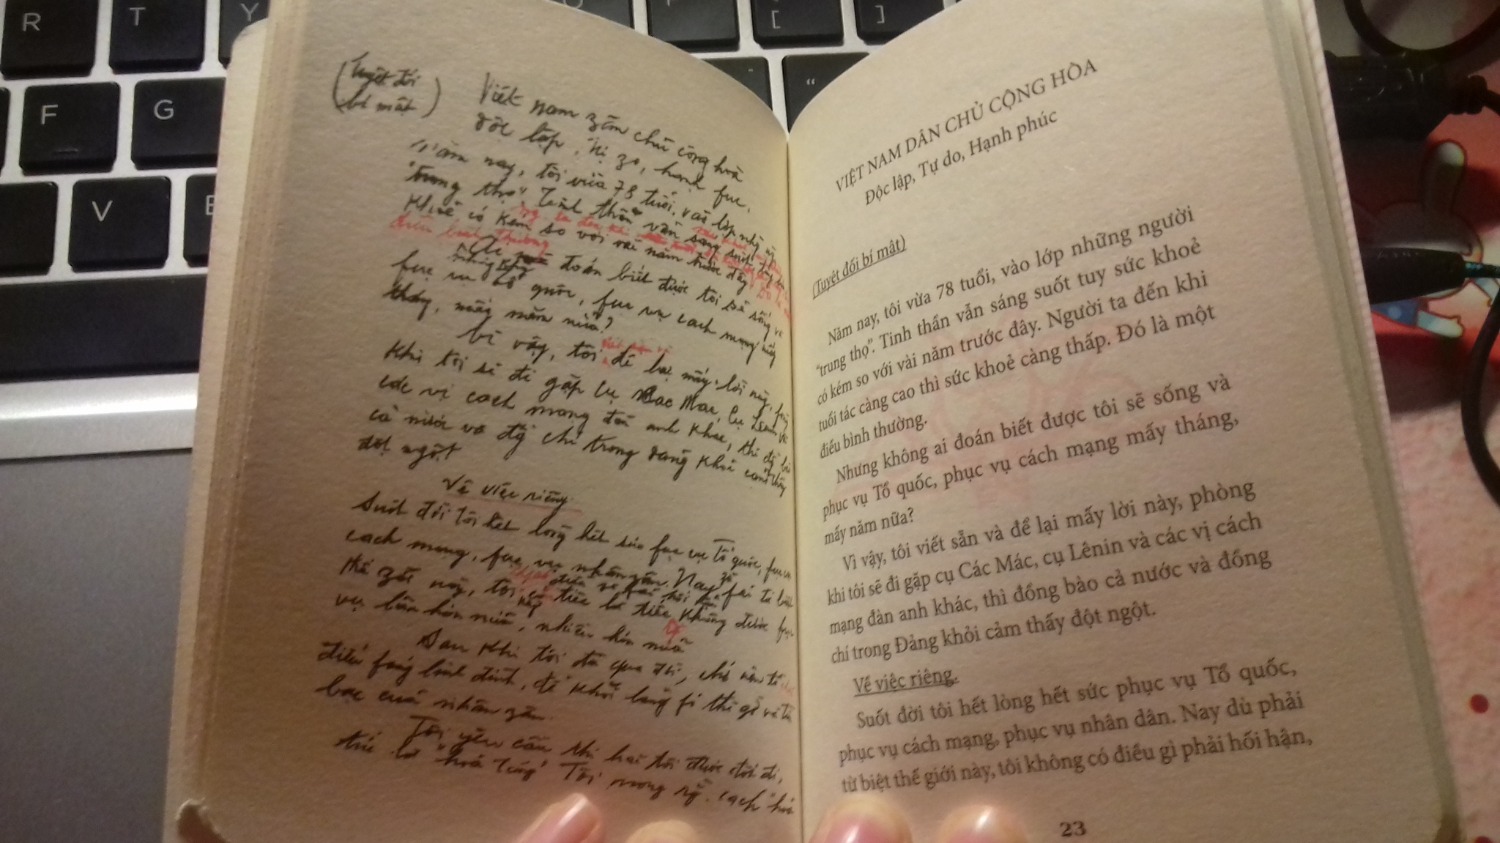 R
T
F
G
V
[
]
"
(Tuyệt đối
bí mật)
Việt nam zân chủ cộng hoà
độc lập, tự zo, hạnh fuc.
Năm nay, tôi vừa 78 tuổi, vào lớp
"trung thọ". Tinh thần vẫn sáng suốt
có kém so với vài năm trước đây
điều bình thường
đoán biết được tôi sẽ sống và
fục vụ tổ quốc, fục vụ cách mạng mấy
tháng, mấy năm nữa?
Vì vậy, tôi để lại mấy lời này,
khi tôi sẽ đi gặp cụ Các Mác, cụ Lênin và
các vị cách mạng đàn anh khác, thì
cả nước và đ/chí trong đảng khỏi cảm thấy
đột ngột
Về việc riêng.
Suốt đời tôi hết lòng hết sức fục vụ Tổ quốc, fục vụ
cách mạng, fục vụ nhân zân. Nay fải từ biệt
thế zới này, tôi tiếc là tiếc không được fục
vụ lâu hơn nữa, nhiều hơn nữa
Sau khi tôi đã qua đời, chớ nên tổ
điếu fúng linh đình, để khỏi lãng fí thì giờ và tiền
bạc của nhân zân.
Tôi yêu cầu thi hài tôi được đốt đi,
"hoả táng". Tôi mong rằng, cách "hoả
VIỆT NAM DÂN CHỦ CỘNG HÒA
Độc lập, Tự do, Hạnh phúc
(Tuyệt đối bí mật)
Năm nay, tôi vừa 78 tuổi, vào lớp những người
"trung thọ". Tinh thần vẫn sáng suốt tuy sức khoẻ
có kém so với vài năm trước đây. Người ta đến khi
tuổi tác càng cao thì sức khoẻ càng thấp. Đó là một
điều bình thường.
Nhưng không ai đoán biết được tôi sẽ sống và
phục vụ Tổ quốc, phục vụ cách mạng mấy tháng,
mấy năm nữa?
Vì vậy, tôi viết sẵn và để lại mấy lời này, phòng
khi tôi sẽ đi gặp cụ Các Mác, cụ Lênin và các vị cách
mạng đàn anh khác, thì đồng bào cả nước và đồng
chí trong Đảng khỏi cảm thấy đột ngột.
Về việc riêng.
Suốt đời tôi hết lòng hết sức phục vụ Tổ quốc,
phục vụ cách mạng, phục vụ nhân dân. Nay dù phải
từ biệt thế giới này, tôi không có điều gì phải hối hận,
23